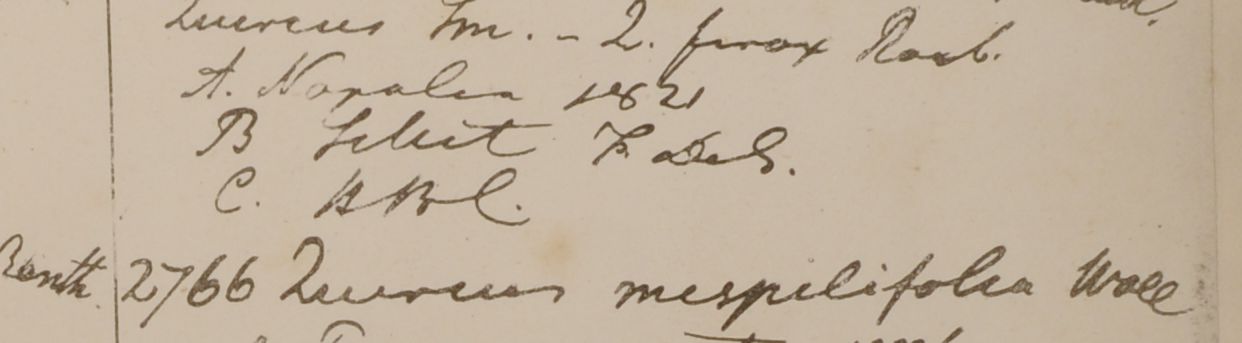 Quercus Sm. - Q. ferox Roxb.
A. Napalia 1821
B Silhet F. DeS.
C. HBC.
Benth. 2766 Quercus mespilifolia Wall